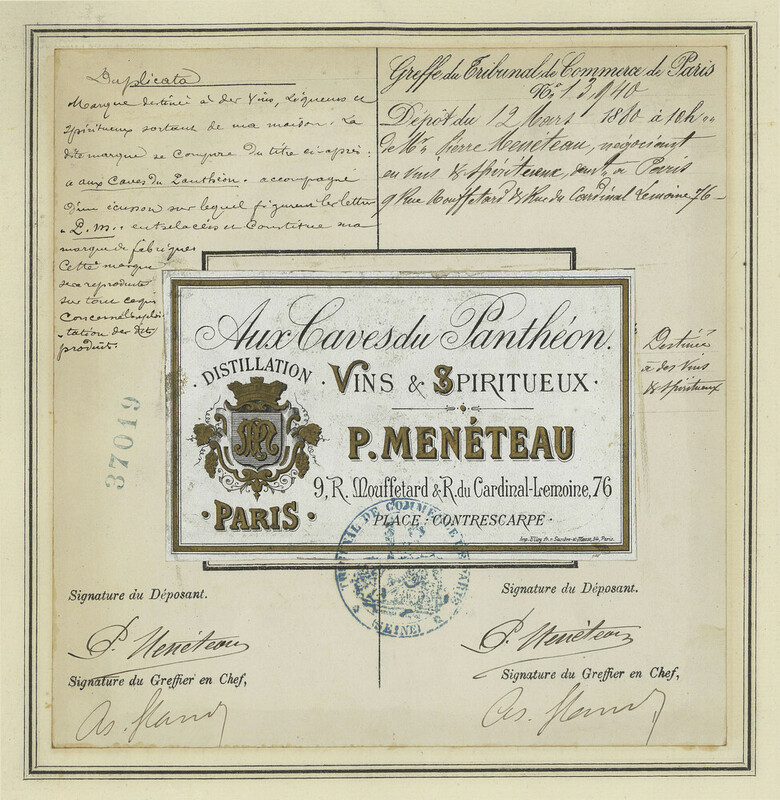 Duplicata
Marque destinée à des Vins, Liqueurs et
Spiritueux sortant de ma maison. La
dite marque se compose du titre ci-après:
"aux Caves du Panthéon" accompagné
d'un écusson sur lequel figurent les lettres
"P. m." entrelacées et constitue ma
marque de fabriques
Cette marque
sera reproduite
sur tout ce qui
concerne l'exploi-
tation des dits
produits.
37019
Greffe du Tribunal de Commerce de Paris
No. 13940
Dépôt du 12 Mars 1880 à 10h
de Mr. Pierre Menéteau, négociant
en vins & spiritueux, demt. à Paris
9 Rue Mouffetard & Rue du Cardinal Lemoine 76
Destinée
à des Vins
& Spiritueux
Aux Caves du Panthéon.
DISTILLATION
· VINS & SPIRITUEUX ·
P. MENÉTEAU
9, R. Mouffetard & R. du Cardinal-Lemoine, 76
· PARIS ·
PLACE · CONTRESCARPE ·
TRIBUNAL DE COMMERCE DE PARIS
(SEINE)
Signature du Déposant.
P. Menéteau
Signature du Greffier en Chef,
Signature du Déposant.
P. Menéteau
Signature du Greffier en Chef,